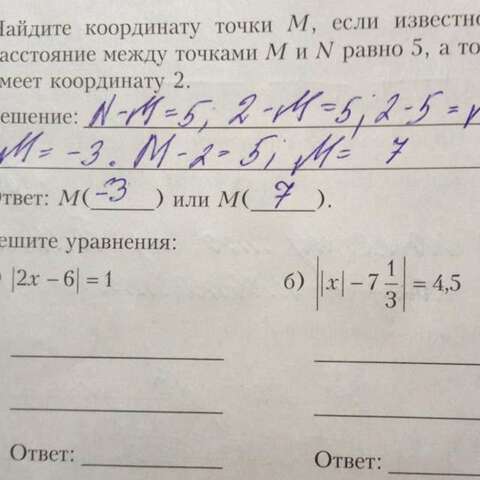 Найдите координату точки M, если известно
расстояние между точками M и N равно 5, а то
имеет координату 2.
Решение: N-M=5; 2-M=5; 2-5=
M=-3. M-2=5; M= 7
Ответ: M( -3 ) или M( 7 ).
Решите уравнения:
) |2x – 6| = 1 б) ||x| – 7 1/3| = 4,5
Ответ: Ответ: